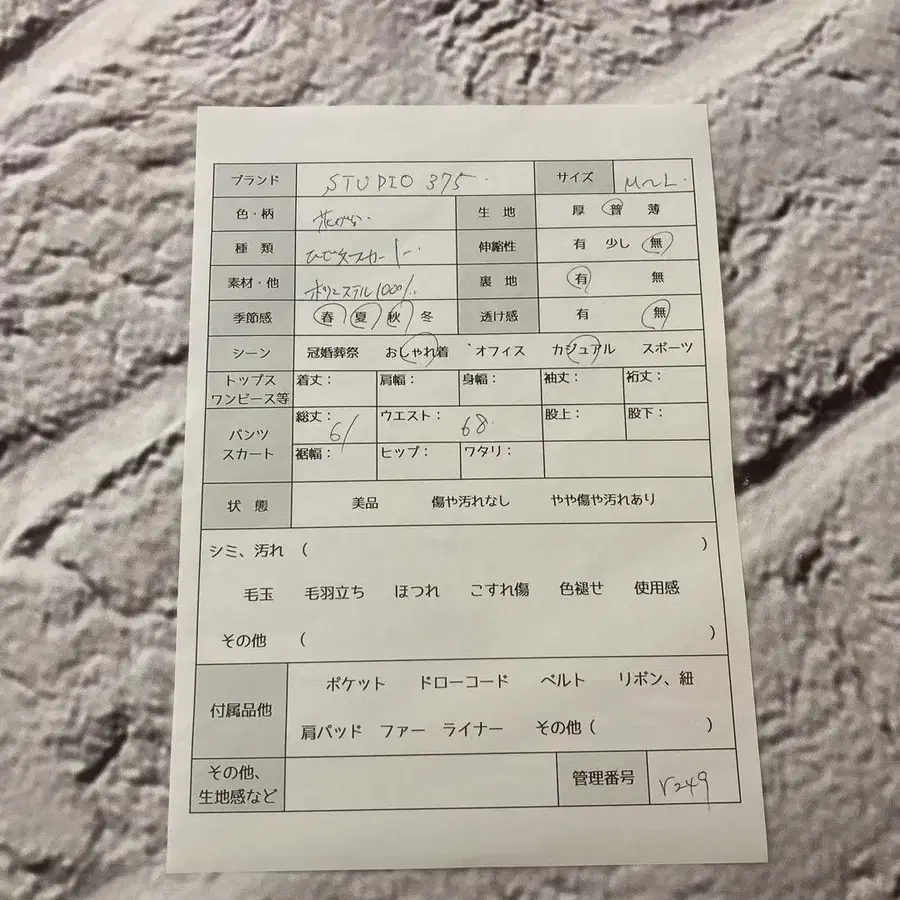 ブランド STUDIO 375. サイズ M〜L.
色・柄 花がら. 生 地 厚 普 薄
種 類 ひざ丈スカート. 伸縮性 有 少し 無
素材・他 ポリエステル100%. 裏 地 有 無
季節感 春 夏 秋 冬 透け感 有 無
シーン 冠婚葬祭 おしゃれ着 オフィス カジュアル スポーツ
トップス ワンピース等 着丈: 肩幅: 身幅: 袖丈: 裄丈:
パンツ スカート 総丈: 61 ウエスト: 68. 股上: 股下:
裾幅: ヒップ: ワタリ:
状 態 美品 傷や汚れなし やや傷や汚れあり
シミ、汚れ ( )
毛玉 毛羽立ち ほつれ こすれ傷 色褪せ 使用感
その他 ( )
付属品他 ポケット ドローコード ベルト リボン、紐
肩パッド ファー ライナー その他 ( )
その他、 生地感など 管理番号 V249